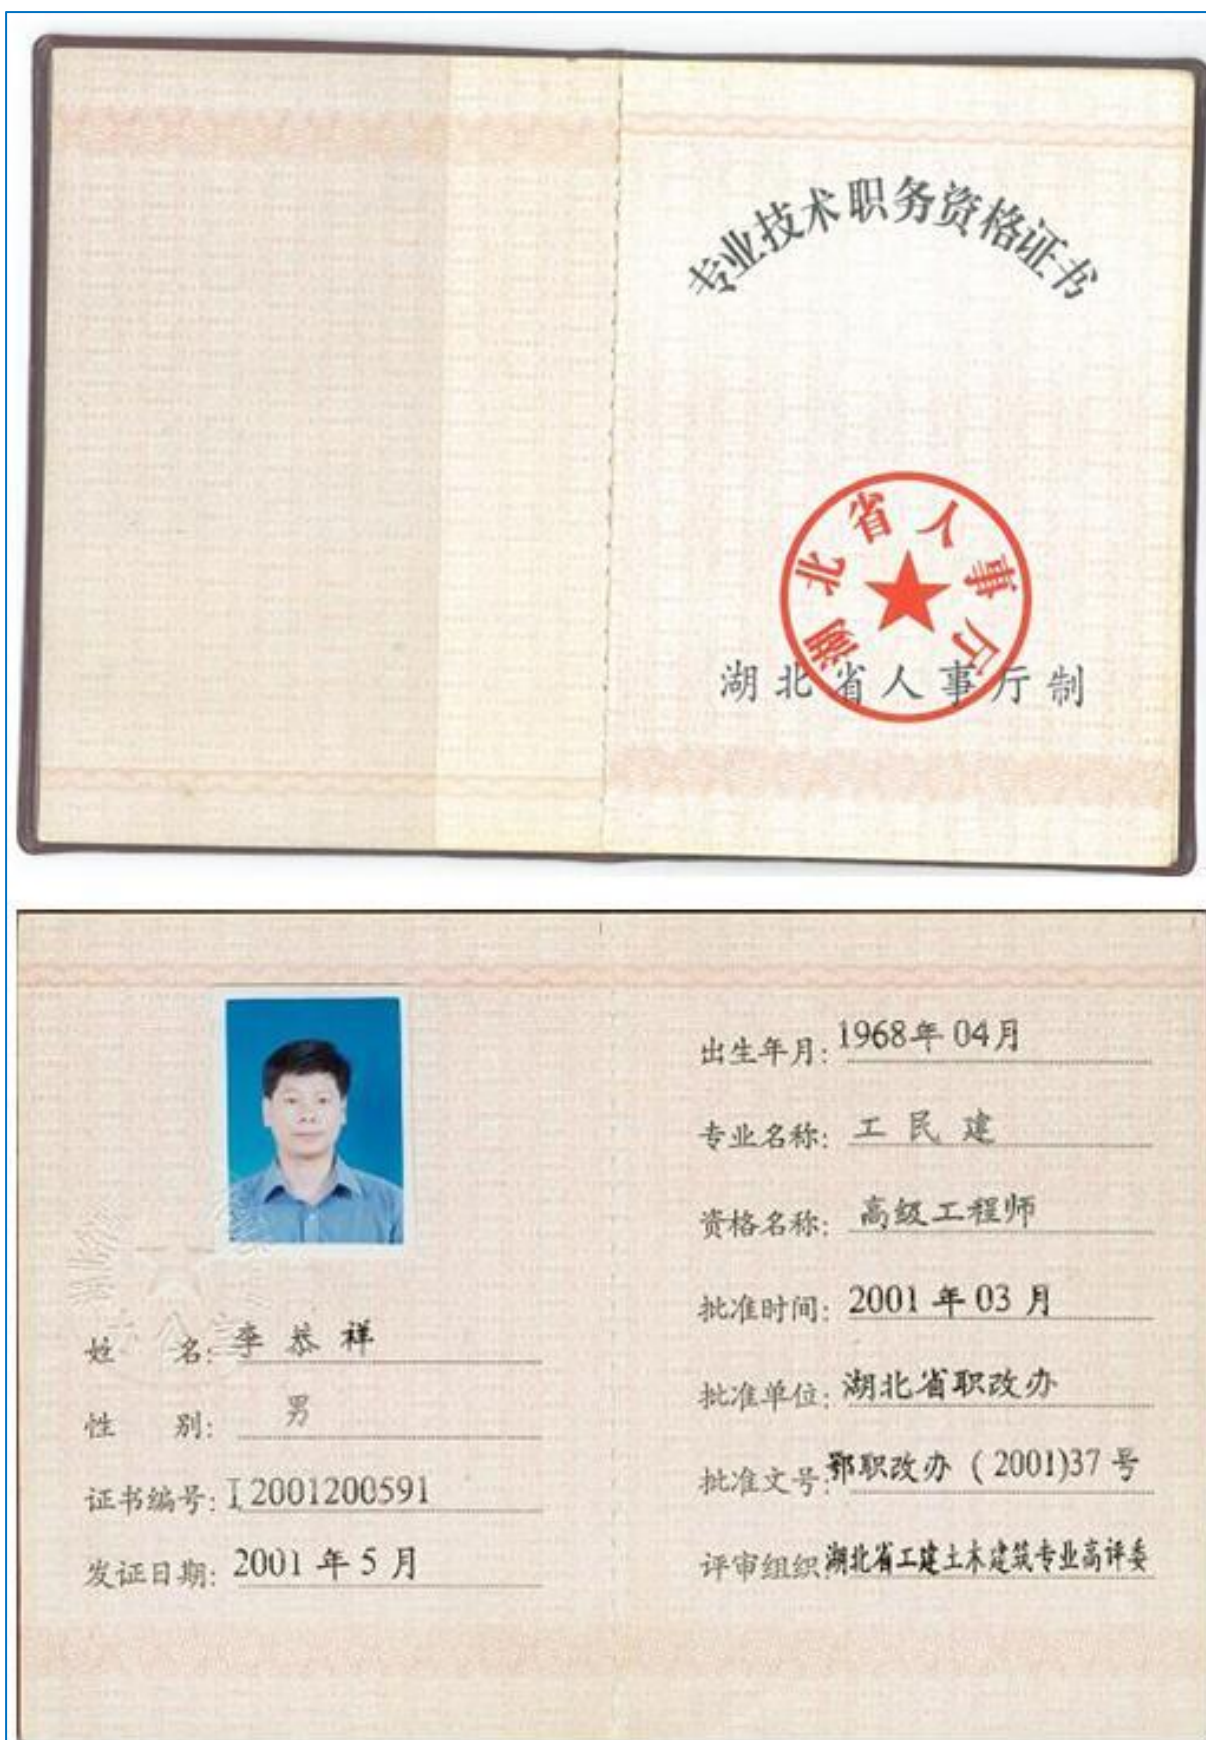 专业技术职务资格证书
湖北省人事厅
湖北省人事厅制
姓名：李恭祥
性别：男
证书编号：I2001200591
发证日期：2001年5月
出生年月：1968年04月
专业名称：工民建
资格名称：高级工程师
批准时间：2001年03月
批准单位：湖北省职改办
批准文号：鄂职改办(2001)37号
评审组织 湖北省工建土木建筑专业高评委